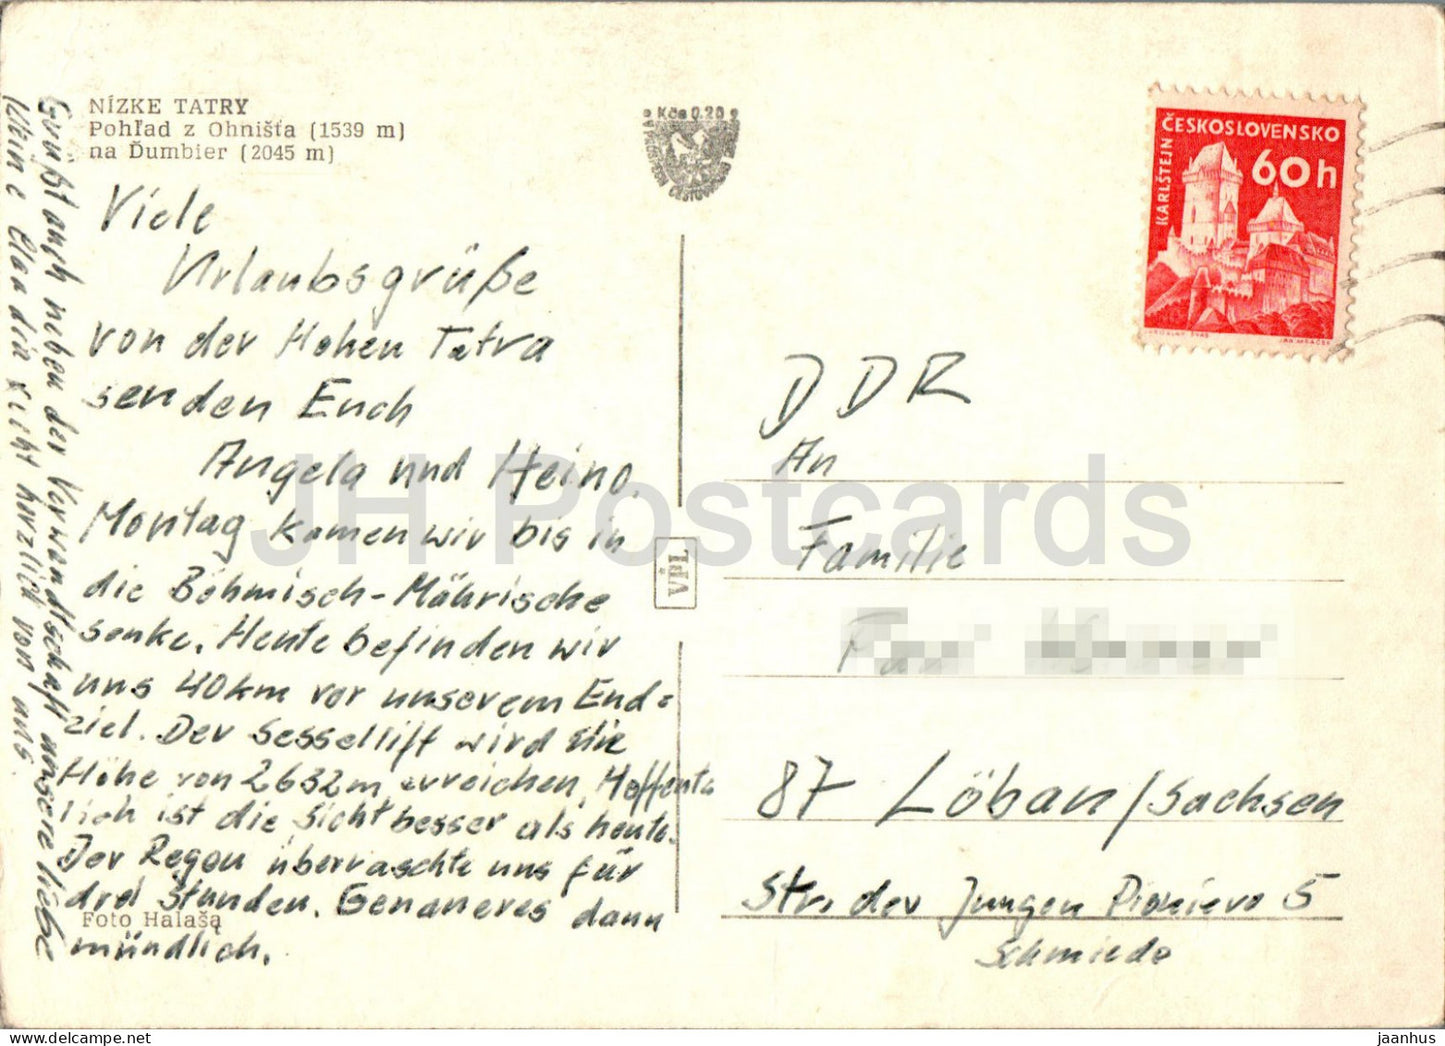 NÍZKE TATRY
Pohľad z Ohnišťa (1539 m)
na Ďumbier (2045 m)
Kčs 0,20
ČESKOSLOVENSKO
60h
KARLŠTEJN
JAROSLAV ŠVÁB
Viele
Urlaubsgrüße
von der Hohen Tatra
senden Euch
Angela und Heino.
Montag kamen wir bis in
die Böhmisch-Mährische
senke. Heute befinden wir
uns 40km vor unserem End=
ziel. Der Sessellift wird die
Höhe von 2632m erreichen. Hoffent
lich ist die Sicht besser als heute.
Der Regen überraschte uns für
drei Stunden. Genaueres dann
mündlich.
Foto Halaša
Grüßt auch neben der Verwandtschaft unsere liebe
kleine Claudia recht herzlich von uns.
VPL
DDR
An
Familie
87 Löbau/Sachsen
Str. der Jungen Pioniere 5
Schmiede
JH Postcards
jaanhus